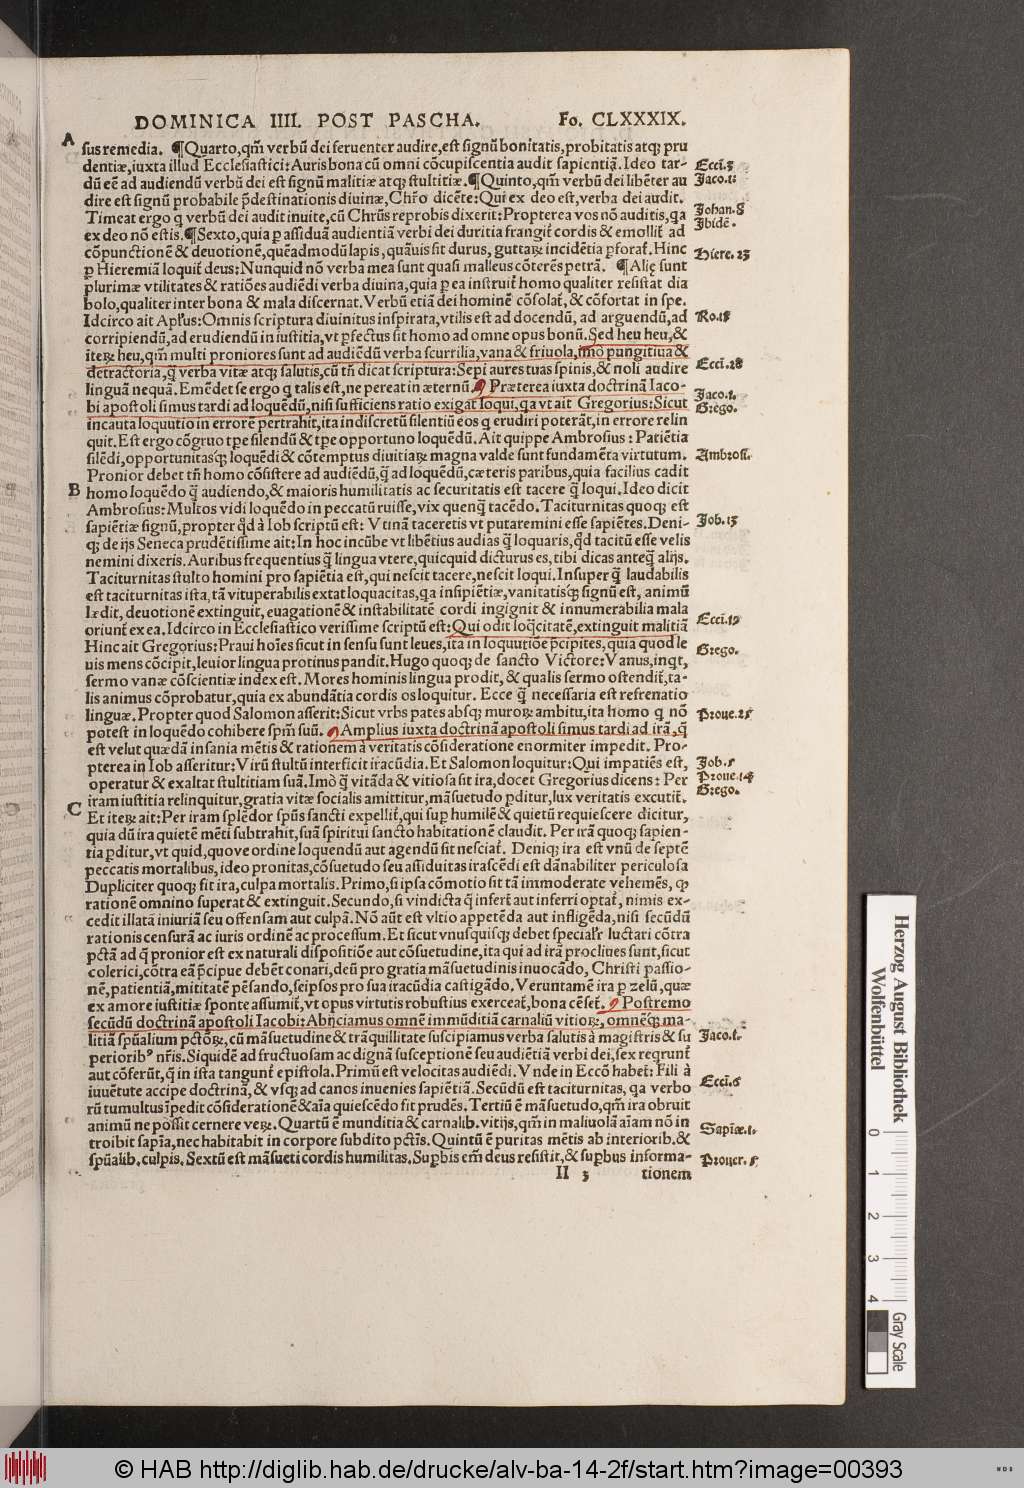 DOMINICA IIII. POST PASCHA. Fo. CLXXXIX.
A
sus remedia. ¶Quarto, qm̃ verbũ dei feruenter audire, est signũ bonitatis, probitatis atqꝫ pru
dentiæ, iuxta illud Ecclesiastici: Auris bona cũ omni cõcupiscentia audit sapientiã. Ideo tar- Ecci.3
dũ eẽ ad audiendũ verbũ dei est signũ malitiæ atqꝫ stultitiæ. ¶Quinto, qm̃ verbũ dei libẽter au Jaco.1.
dire est signũ probabile p̃destinationis diuinæ, Chr̃o dicẽte: Qui ex deo est, verba dei audit.
Timeat ergo q verbũ dei audit inuite, cũ Chrũs reprobis dixerit: Propterea vos nõ auditis, qa Johan.8
ex deo nõ estis. ¶Sexto, quia ꝑ assiduã audientiã verbi dei duritia frangit̃ cordis & emollit̃ ad Ibidẽ.
cõpunctionẽ & deuotionẽ, quẽadmodũ lapis, quãuis sit durus, guttaꝝ incidẽtia ꝑforat̃. Hinc
ꝑ Hieremiã loquit̃ deus: Nunquid nõ verba mea sunt quasi malleus cõterẽs petrã. ¶Alię sunt Hiere.23
plurimæ vtilitates & ratiões audiẽdi verba diuina, quia ꝑ ea instruit̃ homo qualiter resistat dia
bolo, qualiter inter bona & mala discernat. Verbũ etiã dei hominẽ cõsolat̃, & cõfortat in spe.
Idcirco ait Apl̃us: Omnis scriptura diuinitus inspirata, vtilis est ad docendũ, ad arguendũ, ad Ro.15
corripiendũ, ad erudiendũ in iustitia, vt ꝑfectus sit homo ad omne opus bonũ. Sed heu heu, &
iteꝝ heu, qm̃ multi proniores sunt ad audiẽdũ verba scurrilia, vana & friuola, imò pungitiua &
detractoria, q̃ verba vitæ atqꝫ salutis, cũ tñ dicat scriptura: Sepi aures tuas spinis, & noli audire Ecci.28
linguã nequã. Emẽdet se ergo q talis est, ne pereat in æternũ. ¶ Præterea iuxta doctrinã Iaco-
bi apostoli simus tardi ad loquẽdũ, nisi sufficiens ratio exigat loqui, qa vt ait Gregorius: Sicut Jaco.1.
incauta loquutio in errorẽ pertrahit, ita indiscretũ silentiũ eos q erudiri poterãt, in errore relin Grego.
quit. Est ergo cõgruo tpe silendũ & tpe opportuno loquẽdũ. Ait quippe Ambrosius: Patiẽtia
silẽdi, opportunitasq̃ꝫ loquẽdi & cõtemptus diuitiaꝝ magna valde sunt fundamẽta virtutum. Ambros.
Pronior debet tñ homo cõsistere ad audiẽdũ, q̃ ad loquẽdũ, cæteris paribus, quia facilius cadit
B
homo loquẽdo q̃ audiendo, & maioris humilitatis ac securitatis est tacere q̃ loqui. Ideo dicit
Ambrosius: Multos vidi loquẽdo in peccatũ ruisse, vix quenq̃ tacẽdo. Taciturnitas quoqꝫ est
sapiẽtiæ signũ, propter qd̃ à Iob scriptũ est: Vtinã taceretis vt putaremini esse sapiẽtes. Deni- Job.13
qꝫ de ijs Seneca prudẽtissime ait: In hoc incũbe vt libẽtius audias q̃ loquaris, qd̃ tacitũ esse velis
nemini dixeris. Auribus frequentius q̃ lingua vtere, quicquid dicturus es, tibi dicas anteq̃ alijs.
Taciturnitas stulto homini pro sapiẽtia est, qui nescit tacere, nescit loqui. Insuper q̃ laudabilis
est taciturnitas ista, tã vituperabilis extat loquacitas, qa insipiẽtiæ, vanitatisq̃ꝫ signũ est, animũ
lædit, deuotionẽ extinguit, euagationẽ & instabilitatẽ cordi ingignit & innumerabilia mala
oriunt̃ ex ea. Idcirco in Ecclesiastico verissime scriptũ est: Qui odit loq̃citatẽ, extinguit malitiã Ecci.19
Hinc ait Gregorius: Praui hoĩes sicut in sensu sunt leues, ita in loquutiõe p̃cipites, quia quod le
uis mens cõcipit, leuior lingua protinus pandit. Hugo quoqꝫ de sancto Victore: Vanus, inqt, Grego.
sermo vanæ cõscientiæ index est. Mores hominis lingua prodit, & qualis sermo ostendit̃, ta-
lis animus cõprobatur, quia ex abundãtia cordis os loquitur. Ecce q̃ necessaria est refrenatio
linguæ. Propter quod Salomon asserit: Sicut vrbs patẽs absqꝫ muroꝝ ambitu, ita homo q nõ Proue.25
potest in loquẽdo cohibere spm̃ suũ. ¶ Amplius iuxta doctrinã apostoli simus tardi ad irã, q̃
est velut quædã insania mẽtis & rationem à veritatis cõsideratione enormiter impedit. Pro-
pterea in Iob asseritur: Virũ stultũ interficit iracũdia. Et Salomon loquitur: Qui impatiẽs est, Job.5
operatur & exaltat stultitiam suã. Imò q̃ vitãda & vitiosa sit ira, docet Gregorius dicens: Per Proue.14
iram iustitia relinquitur, gratia vitæ socialis amittitur, mãsuetudo ꝑditur, lux veritatis excutit̃. Grego.
C
Et iteꝝ ait: Per iram splẽdor spũs sancti expellit̃, qui sup humilẽ & quietũ requiescere dicitur,
quia dũ ira quietẽ mẽti subtrahit, suã spiritui sancto habitationẽ claudit. Per irã quoqꝫ sapien-
tia ꝑditur, vt quid, quoue ordine loquendũ aut agendũ sit nesciat̃. Deniqꝫ ira est vnũ de septẽ
peccatis mortalibus, ideo pronitas, cõsuetudo seu assiduitas irascẽdi est dãnabiliter periculosa
Dupliciter quoqꝫ fit ira, culpa mortalis. Primo, si ipsa cõmotio sit tã immoderate vehemẽs, ꝙ
rationẽ omnino superat & extinguit. Secundo, si vindicta q̃ infert̃ aut inferri optat̃, nimis ex-
cedit illatã iniuriã seu offensam aut culpã. Nõ aũt est vltio appetẽda aut infligẽda, nisi secũdũ
rationis censurã ac iuris ordinẽ ac processum. Et sicut vnusquisqꝫ debet special̃r luctari cõtra
pctã ad q̃ pronior est ex naturali dispositiõe aut cõsuetudine, ita qui ad irã procliues sunt, sicut
colerici, cõtra eã p̃cipue debẽt conari, deũ pro gratia mãsuetudinis inuocãdo, Christi passio-
nẽ, patientiã, mititatẽ pẽsando, seipsos pro sua iracũdia castigãdo. Veruntamẽ ira ꝑ zelũ, quæ
ex amore iustitiæ sponte assumit̃, vt opus virtutis robustius exerceat̃, bona cẽset̃. ¶ Postremo
secũdũ doctrinã apostoli Iacobi: Abijciamus omnẽ immũditiã carnaliũ vitioꝝ, omnẽq̃ꝫ ma-
litiã spũalium pctõꝝ, cũ mãsuetudine & trãquillitate suscipiamus verba salutis à magistris & su Jaco.1.
periorib⁹ nr̃is. Siquidẽ ad fructuosam ac dignã susceptionẽ seu audiẽtiã verbi dei, sex reqrunt̃
aut cõferũt, q̃ in ista tangunt̃ epistola. Primũ est velocitas audiẽdi. Vnde in Eccõ habet̃: Fili à
iuuẽtute accipe doctrinã, & vsqꝫ ad canos inuenies sapiẽtiã. Secũdũ est taciturnitas, qa verbo Ecci.6
rũ tumultus ĩpedit cõsiderationẽ & aĩa quiescẽdo fit prudẽs. Tertiũ ẽ mãsuetudo, qm̃ ira obruit
animũ ne possit cernere veꝝ. Quartũ ẽ munditia & carnalib. vitijs, qm̃ in maliuolã aĩam nõ in
troibit sapĩa, nec habitabit in corpore subdito pctĩs. Quintũ ẽ puritas mẽtis ab interiorib. & Sapĩæ.1.
spũalib. culpis. Sextũ est mãsueti cordis humilitas. Supbis em̃ deus resistit, & supbus informa- Prouer.5
II 3 tionem
Herzog August Bibliothek
Wolfenbüttel
0 1 2 3 4
Gray Scale
© HAB http://diglib.hab.de/drucke/alv-ba-14-2f/start.htm?image=00393